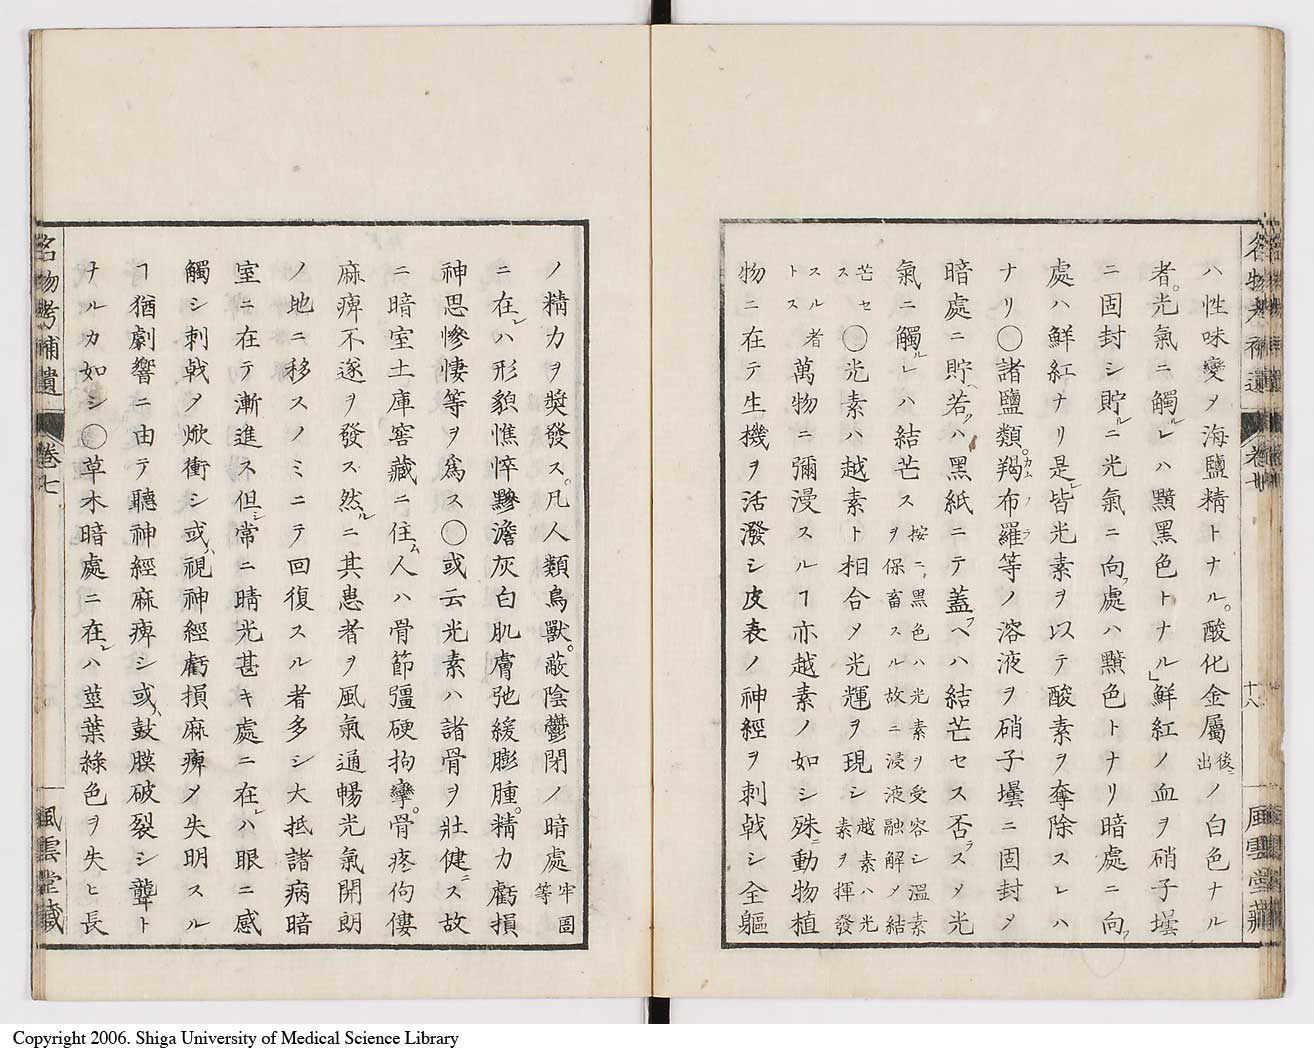 ハ性味變〆海鹽精トナル。酸化金屬後ニ出ノ白色ナル
者。光氣ニ觸ルレハ黯黑色トナル」鮮紅ノ血ヲ硝子壜
ニ固封シ貯ルニ光氣ニ向フ處ハ黯色トナリ暗處ニ向フ
處ハ鮮紅ナリ是レ皆光素ヲ以テ酸素ヲ奪除スレハ
ナリ○諸鹽類。羯布羅カムフラ等ノ溶液ヲ硝子壜ニ固封〆
暗處ニ貯ヘ若クハ黑紙ニテ蓋フヘハ結芒セス否ラス〆光
氣ニ觸ルレハ結芒ス按ニ、黑色ハ光素ヲ受容シ溫素ヲ保畜スル故ニ浸液融解〆結
芒セス○光素ハ越素ト相合〆光輝ヲ現シ越素ハ光素ヲ揮發
スル者トス萬物ニ彌漫スルヿ亦越素ノ如シ殊ニ動物植
物ニ在テ生機ヲ活潑シ皮表ノ神經ヲ刺戟シ全軀
名物考補遺 卷七 十八 風雲堂藏
ノ精力ヲ奬發ス。凡人類鳥獸。蔽陰鬱閉ノ暗處牢圄等
ニ在レハ形貌憔悴黲澹灰白肌膚弛緩膨腫。精力虧損
神思慘悽等ヲ爲ス○或云光素ハ諸骨ヲ壯健ニス故
ニ暗室土庫窖藏ニ住ム人ハ骨節彊硬拘攣。骨疼佝僂
麻痺不遂ヲ發ス然ルニ其患者ヲ風氣通暢光氣開朗
ノ地ニ移スノミニテ回復スル者多シ大抵諸病暗
室ニ在テ漸進ス但シ常ニ晴光甚キ處ニ在レハ眼ニ感
觸シ刺戟〆焮衝シ或ハ視神經虧損麻痺〆失明スル
ヿ猶劇響ニ由テ聽神經麻痺シ或ハ鼓膜破裂シ聾ト
ナルカ如シ○草木暗處ニ在レハ莖葉綠色ヲ失ヒ長
名物考補遺 卷七 風雲堂藏
Copyright 2006. Shiga University of Medical Science Library